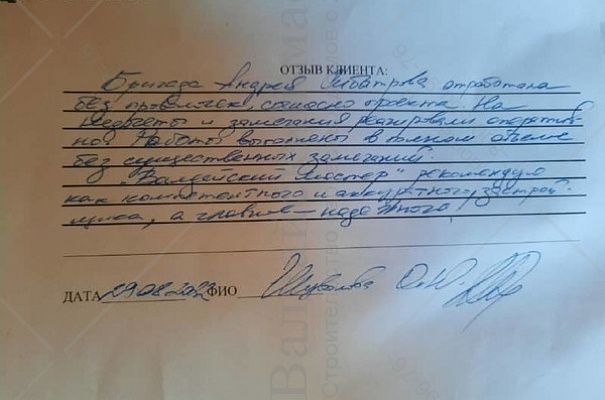 ОТЗЫВ КЛИЕНТА:
Бригада Андрея отработала
без проволочек, согласно проекта. На
недочеты и замечания реагировали оператив-
но. Работы выполнены в полном объеме
без существенных замечаний.
"Валдайский Мастер" рекомендую
как компетентного и аккуратного застрой-
щика, а главное – надежного
ДАТА 29.08.2022 ФИО Шувалова О.Ю.